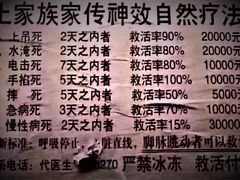 土家族家传神效自然疗法
上吊死 2天之内者 救活率90% 20000元
水淹死 2天之内者 救活率80% 20000元
电击死 7天之内者 救活率80% 10000元
手掐死 5天之内者 救活率100% 10000元
摔死 5天之内者 救活率50% 5000元
急病死 3天之内者 救活率70% 10000元
慢性病死 2天之内者 救活率15% 30000元
标准:呼吸停止 直线,脚脉跳动者可以救
电话:代医生 270 严禁冰冻 救活付